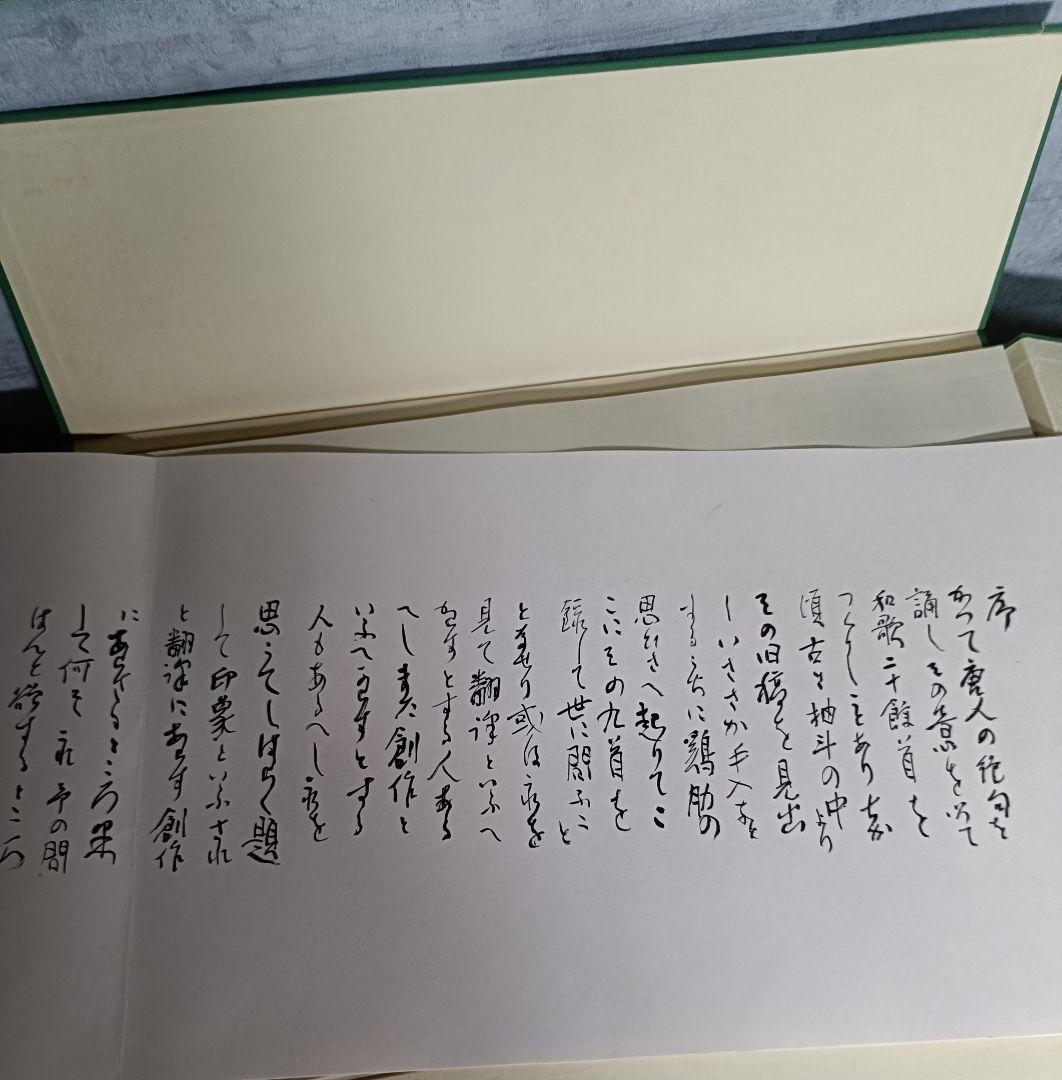 序
かつて唐人の絶句を
誦しその意を以て
和歌二十餘首を
つくりしことあり
頃 古き抽斗の中より
その旧稿を見出
しいささか手入など
するうちに鶏肋の
思ひさへ起りてこ
こにその九首を
録して世に問ふこ
ととせり或は之を
見て翻譯といふへ
からすとする人ある
へしまた創作と
いふへからすとする
人もあるへし之を
思うてしはらく題
して印象といふされ
と翻譯にあらす創作
にあらさるところ果
して何そ之予の問
はんと欲するところ